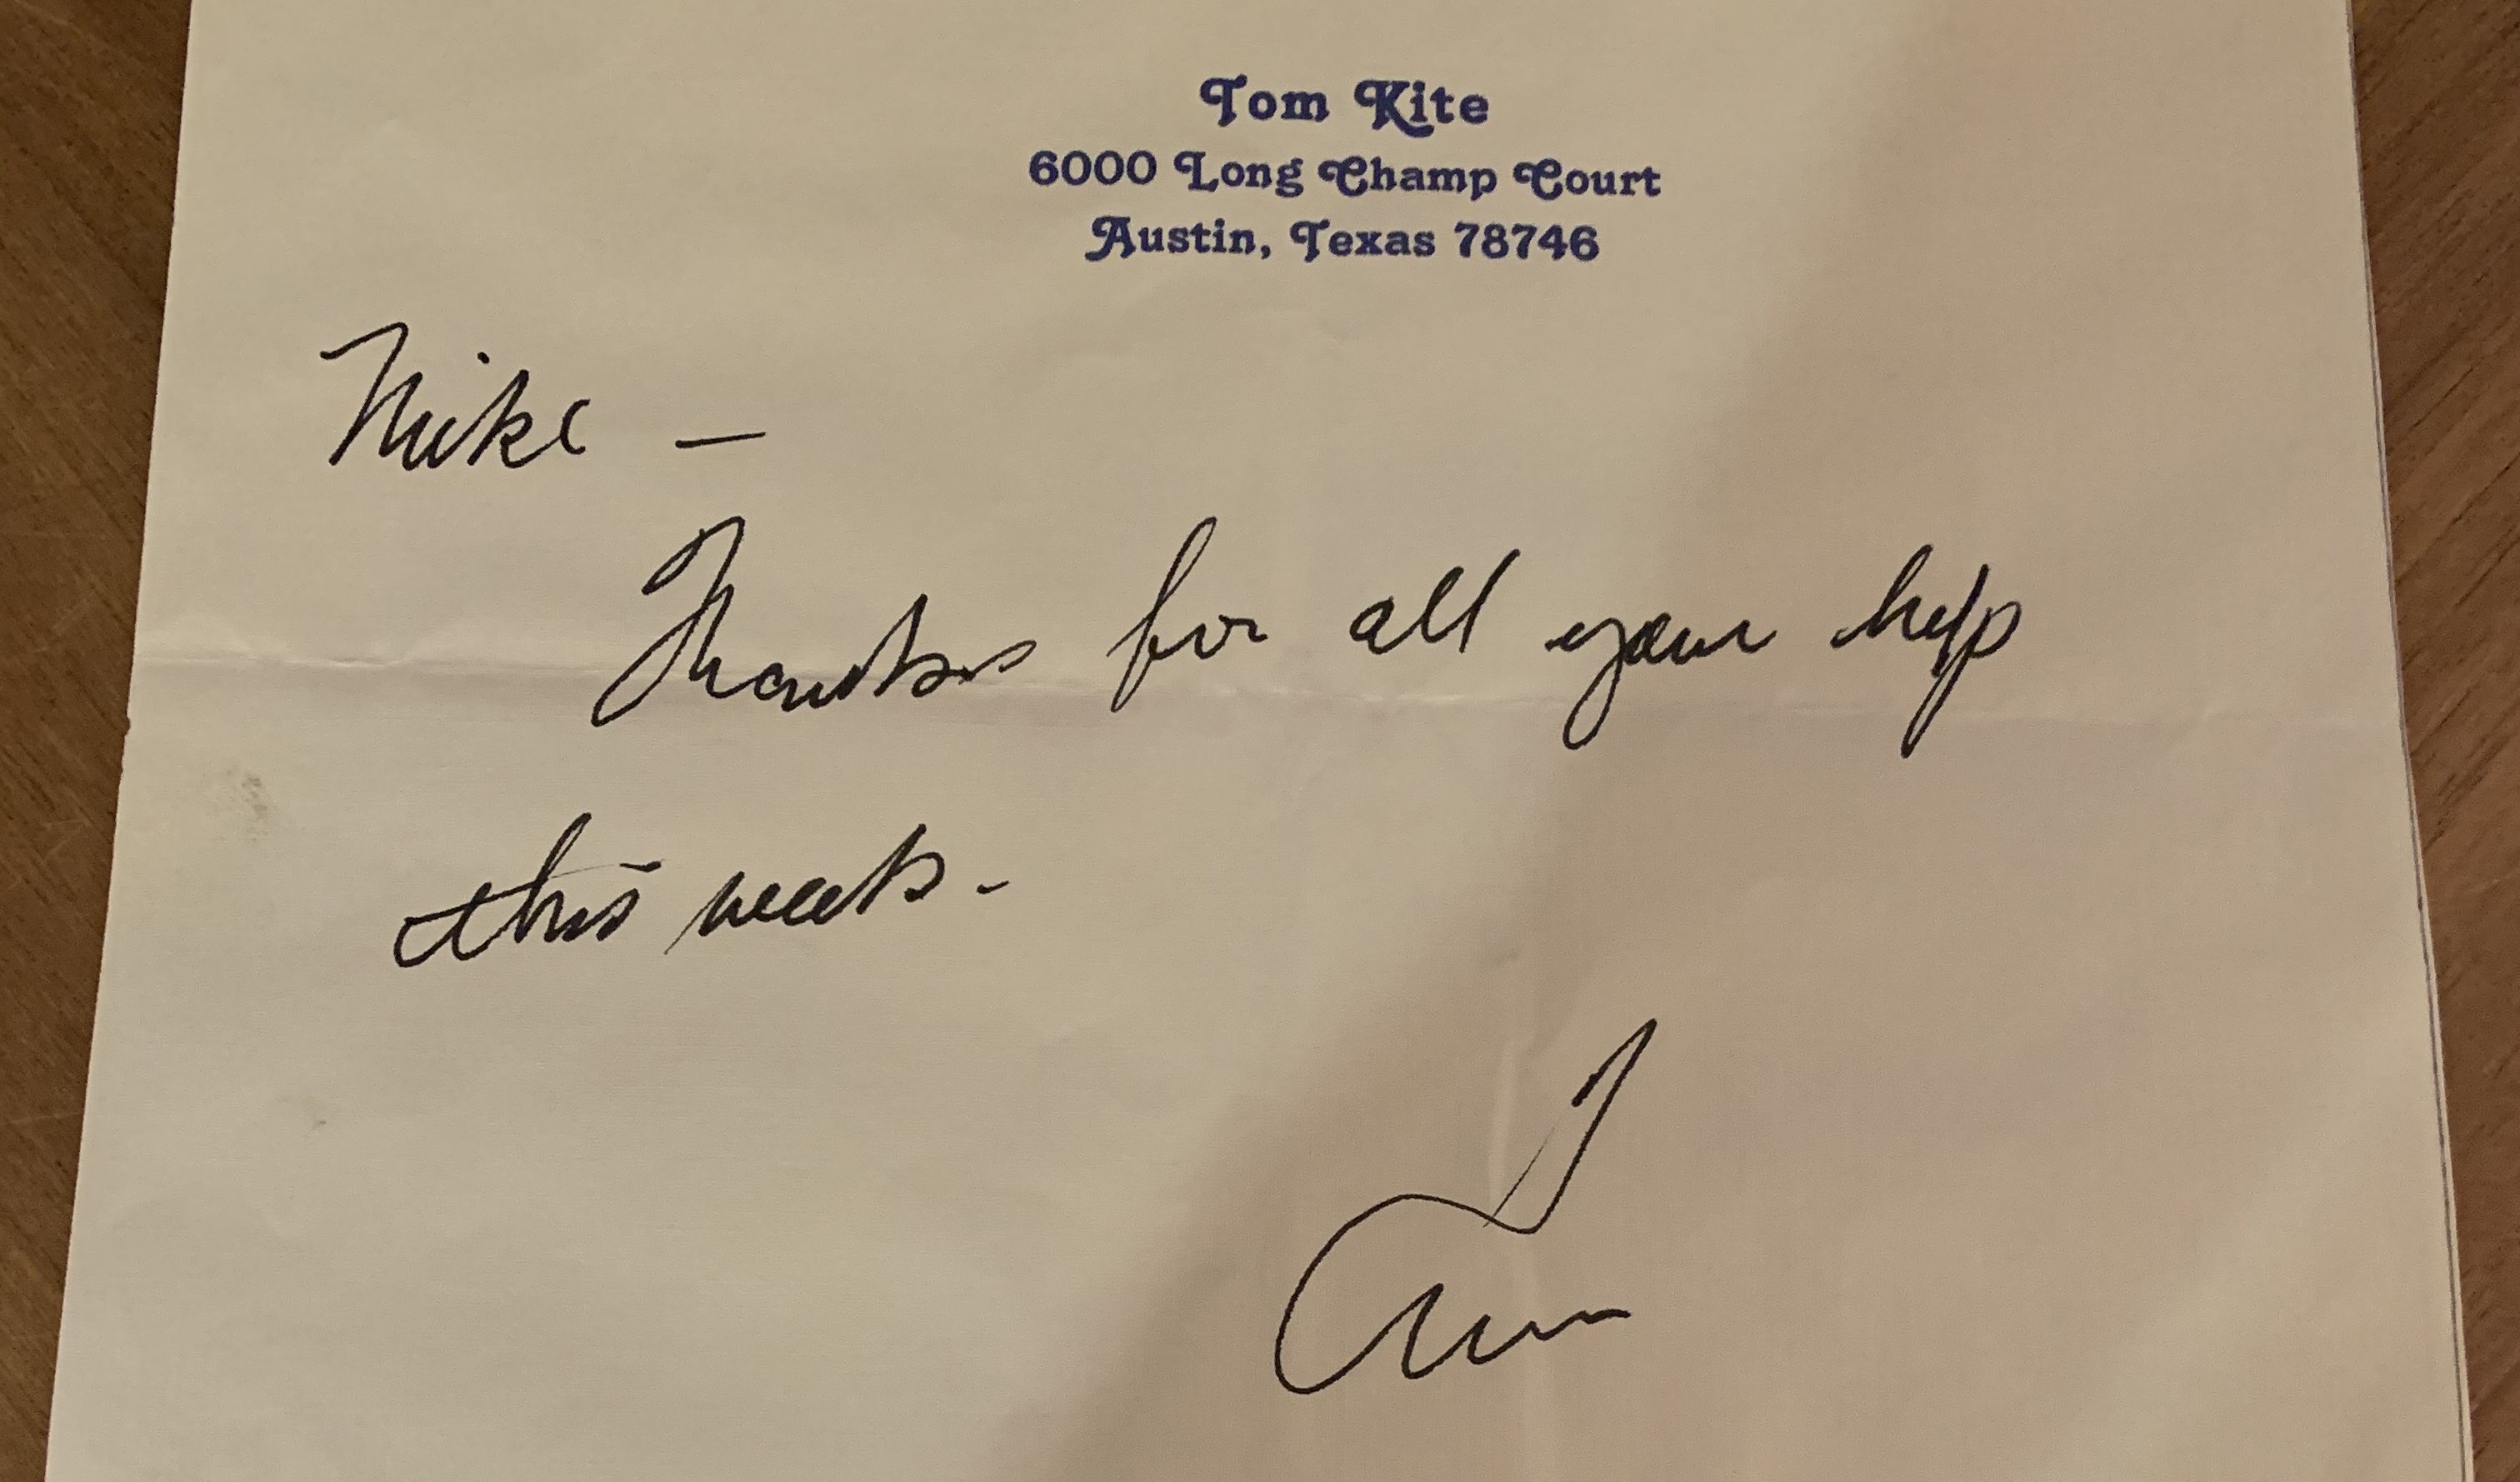 Tom Kite
6000 Long Champ Court
Austin, Texas 78746
Mike —
Thanks for all your help
this week -
Tom